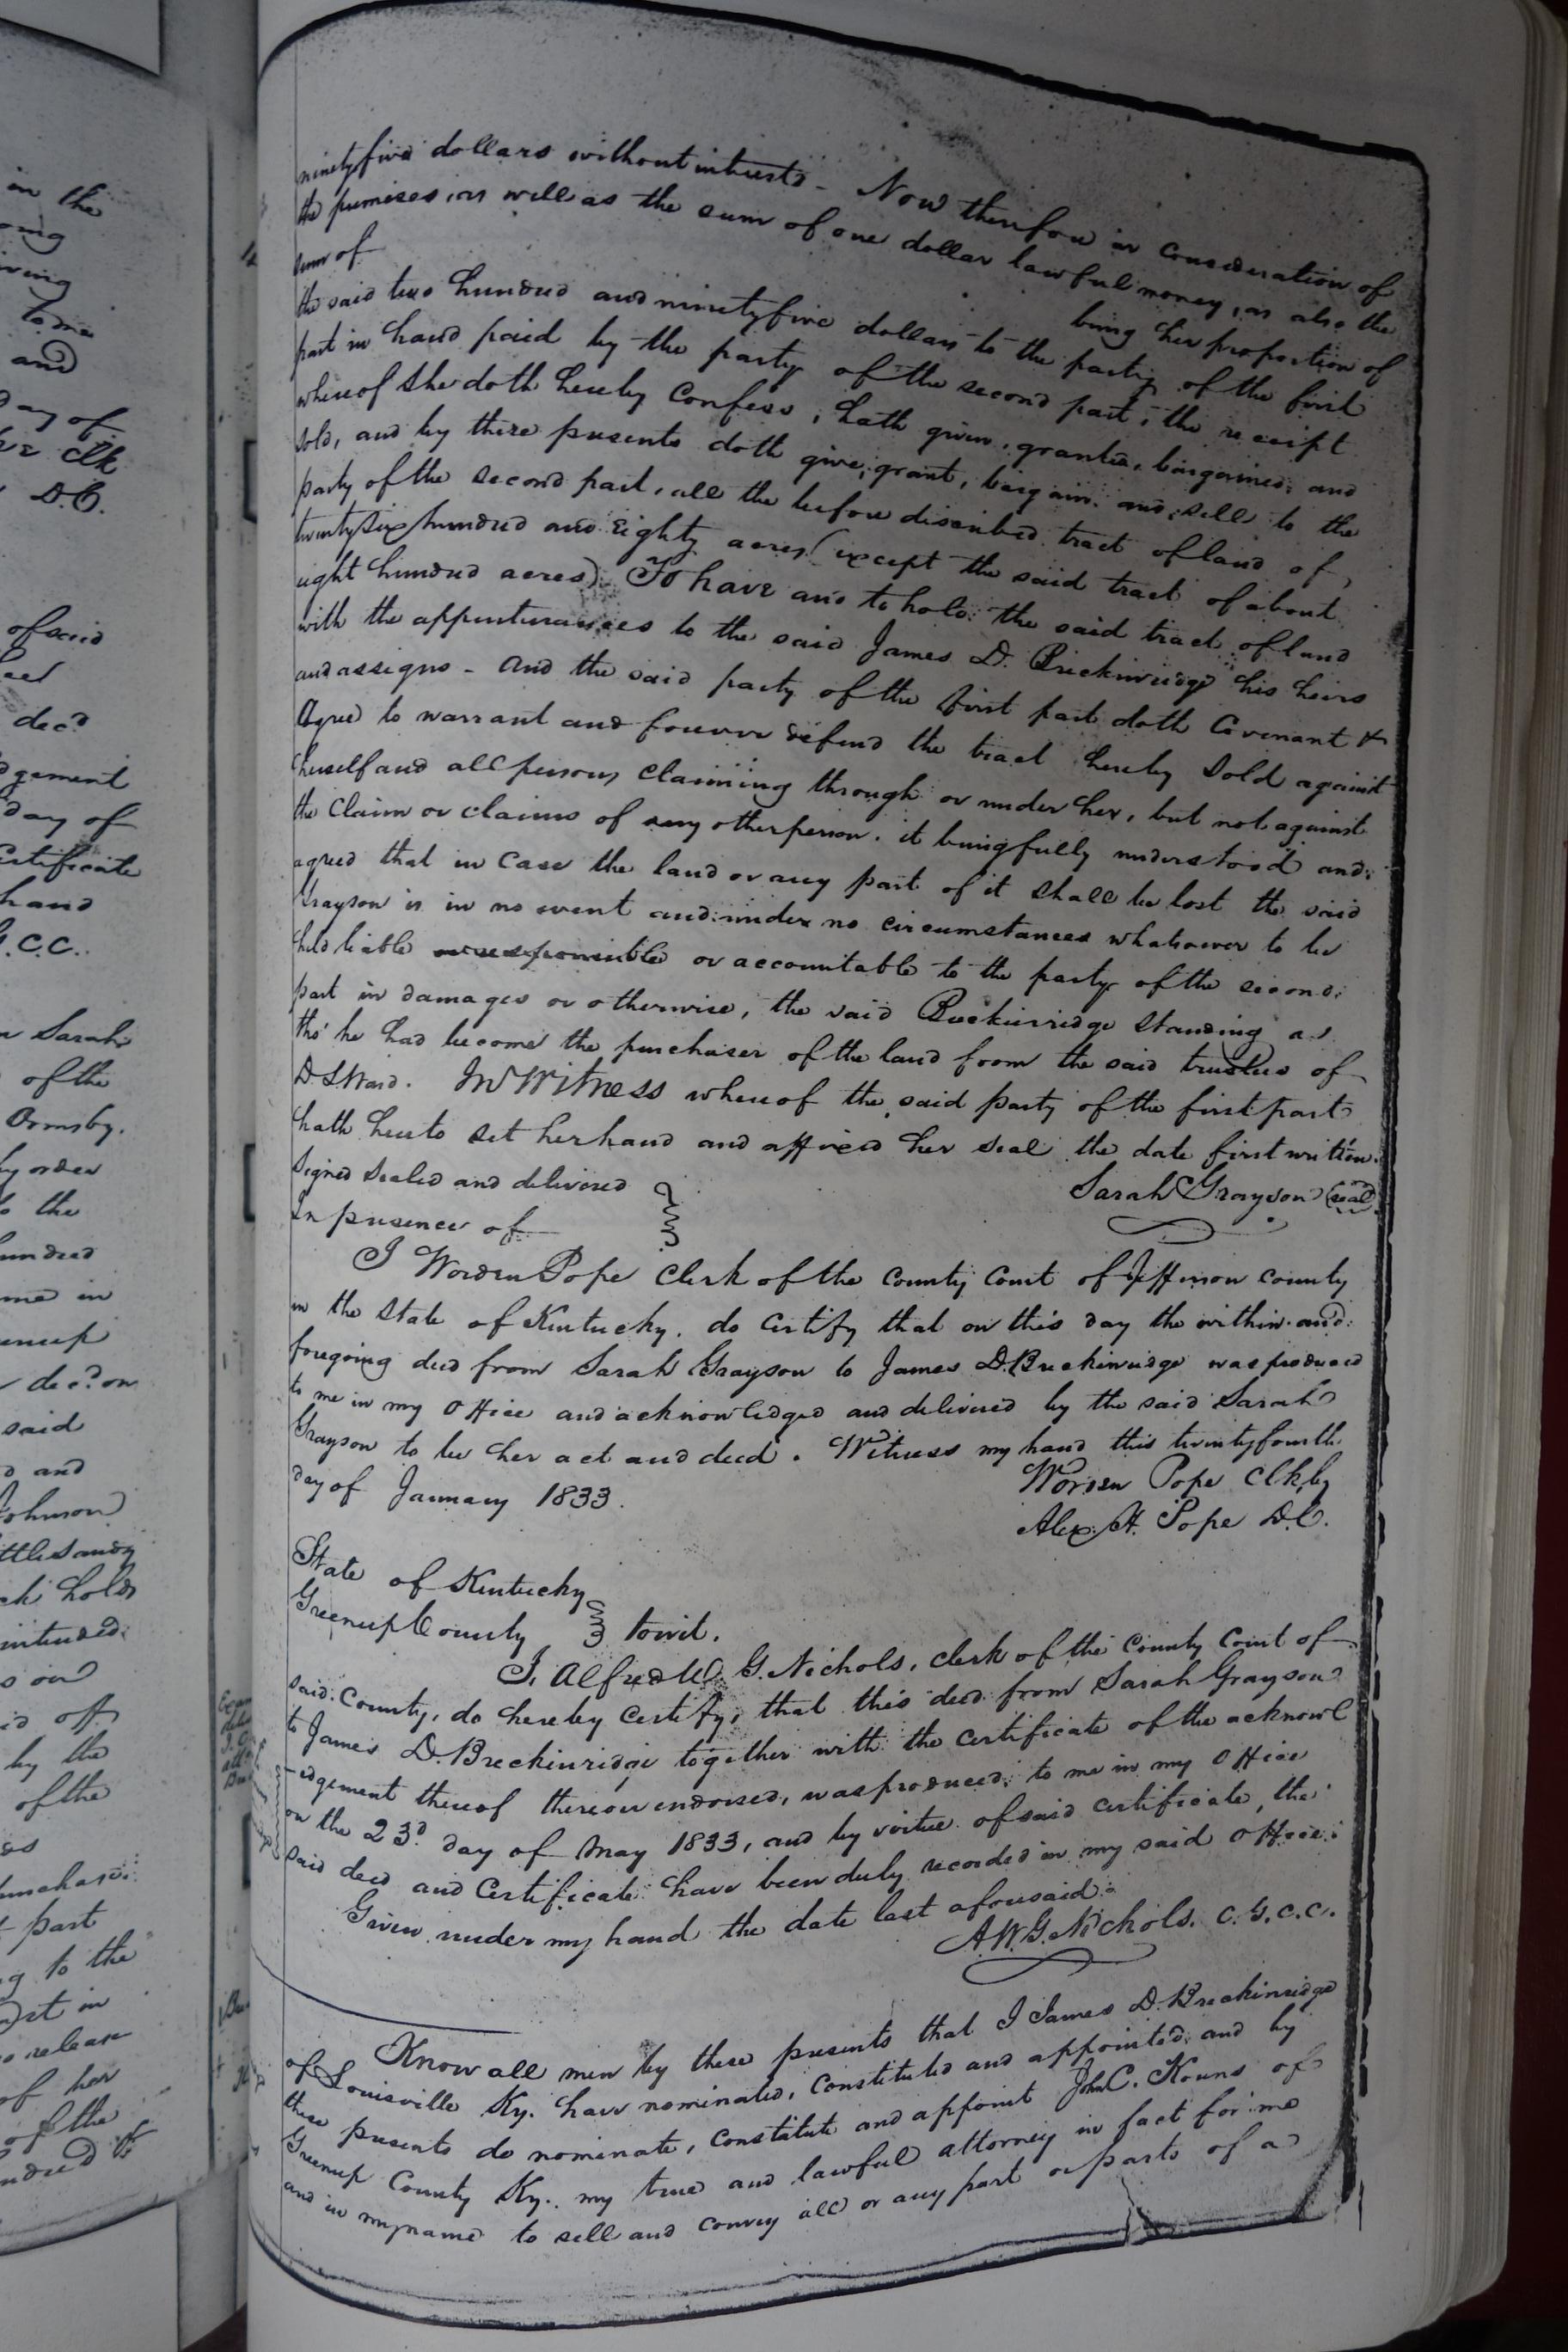 in the
and
day of
Clk
D.C.
of said
dec.d
day of
hand
G.C.C.
Sarah
of the
Ormsby.
by order
to the
hundred
me in
said
and
Johnson
intended
by the
of the
part
to the
release
of her
of the
ninetyfive dollars without interests - Now therefore in Consideration of
the premises, as well as the sum of one dollar lawful money, as also the
sum of being her proportion of
the said two hundred and ninetyfive dollars to the party of the first
part in hand paid by the party of the second part, the receipt
whereof she doth hereby Confess, hath given, granted, bargained, and
sold, and by these presents doth give, grant, bargain and sell to the
party of the second part, all the before discribed tract of land of,
twentysix hundred and Eighty acres (except the said tract of about
eight hundred acres) To have and to hold the said tract of land
with the appurtenances to the said James D. Breckinridge his heirs
and assigns - And the said party of the first part doth Covenant &
Agree to warrant and forever defend the tract hereby Sold against
herself and all persons Claiming through or under her, but not against
the Claim or claims of any other person. it being fully understood and
agreed that in Case the land or any part of it shall be lost the said
Grayson is in no event and under no circumstances whatsoever to be
held liable or responsible or accountable to the party of the second
part in damages or otherwise, the said Breckinridge standing as
tho' he had become the purchaser of the land from the said trustees of
D. L. Ward. In Witness whereof the said party of the first part
hath hereto set her hand and affixed her seal the date first written.
Signed Sealed and delivered Sarah Grayson (seal)
In presence of
I Worden Pope Clerk of the County Court of Jefferson County
in the State of Kentucky. do Certify that on this day the within and
foregoing deed from Sarah Grayson to James D. Breckinridge was produced
to me in my Office and acknowledged and delivered by the said Sarah
Grayson to be her act and deed. Witness my hand this twentyfourth
day of January 1833. Worden Pope Clk by
Alex. H. Pope D.C.
State of Kentucky
Greenup County towit.
I, Alfred W. G. Nichols, clerk of the County Court of
said County, do hereby Certify, that this deed from Sarah Grayson
to James D. Breckinridge together with the Certificate of the acknowl
-edgement thereof thereon endorsed, was produced to me in my Office
on the 23d day of May 1833, and by virtue of said certificate, the
said deed and Certificate have been duly recorded in my said Office.
Given under my hand the date last aforesaid.
A.W.G. Nichols. C.G.C.C.
Know all men by these presents that I James D. Breckinridge
of Louisville Ky. have nominated, Constituted and appointed, and by
these presents do nominate, Constitute and appoint John C. Kouns of
Greenup County Ky. my true and lawful attorney in fact for me
and in my name to sell and convey all or any part or parts of a